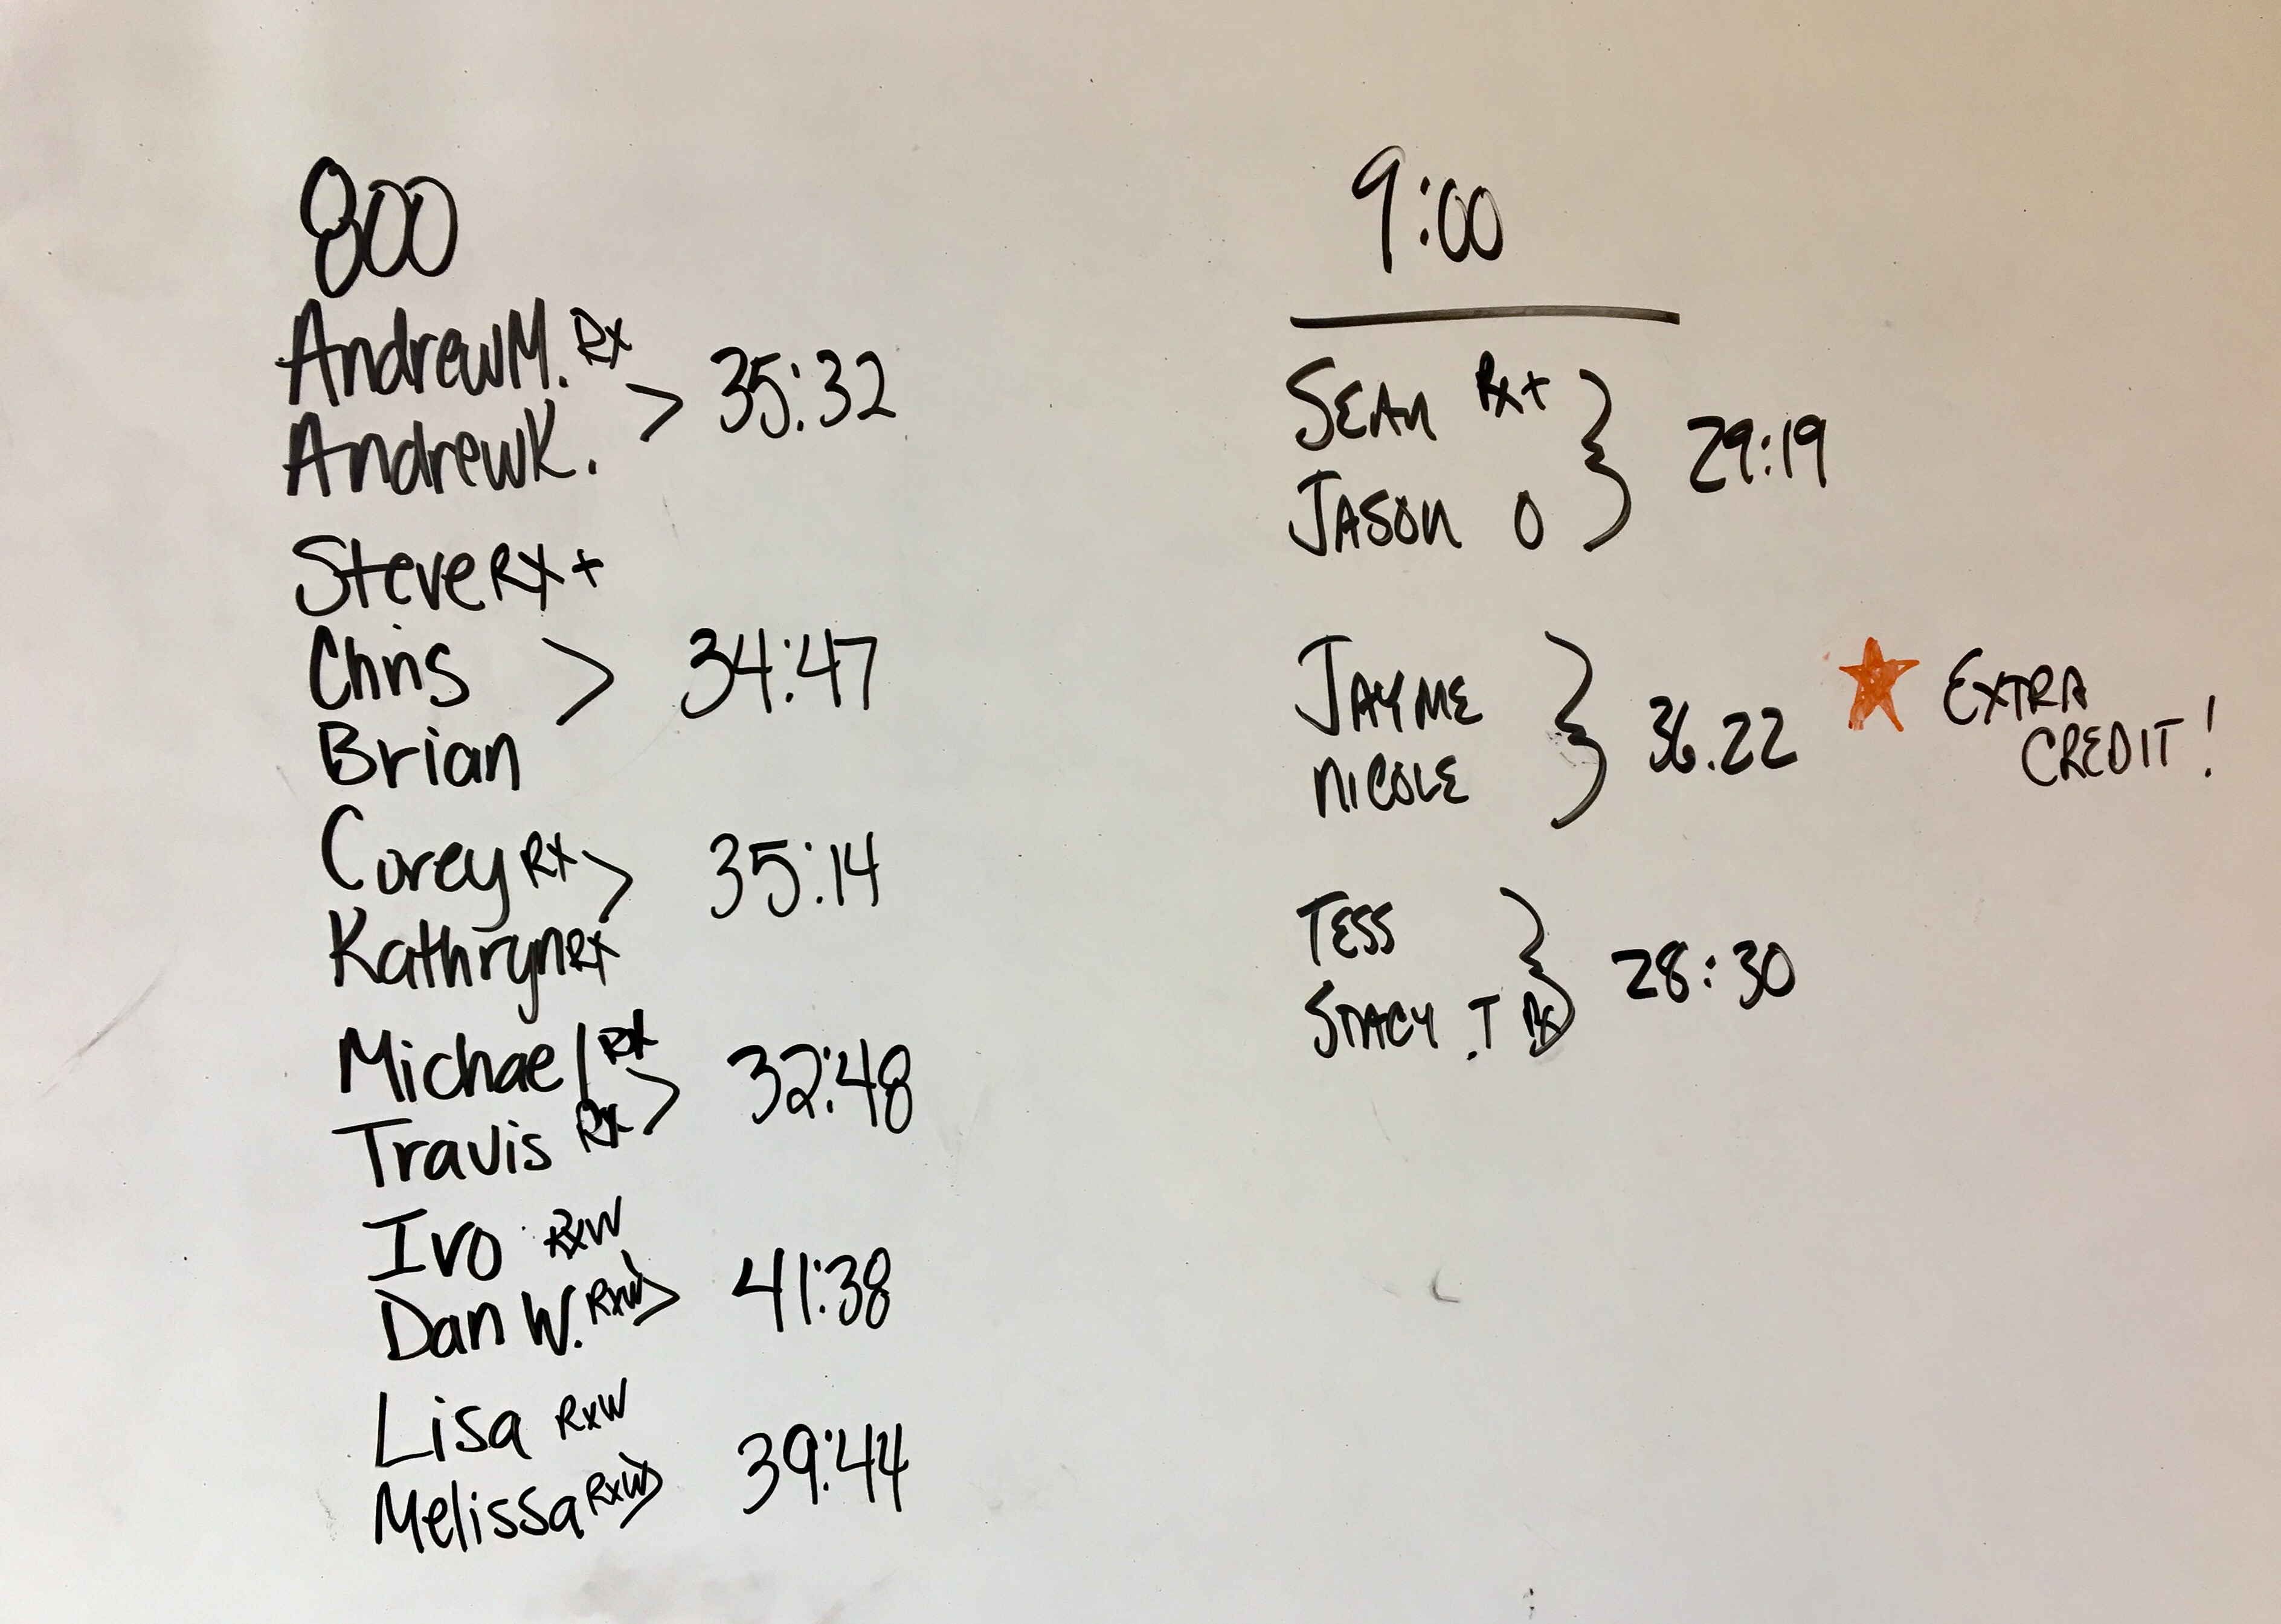 800
Andrew M. Rx
> 35:32
Andrew K.
Steve RX +
Chris > 34:47
Brian
Corey RX > 35:14
Kathryn RX
Michael RX
> 32:48
Travis RX
Ivo RxW
Dan W. RxW > 41:38
Lisa RxW
Melissa RxW > 39:44
9:00
SEAN Rx+
} 29:19
JASON O
JAYME
} 36.22 ★ EXTRA CREDIT!
NICOLE
TESS
} 28:30
STACY .T Rx